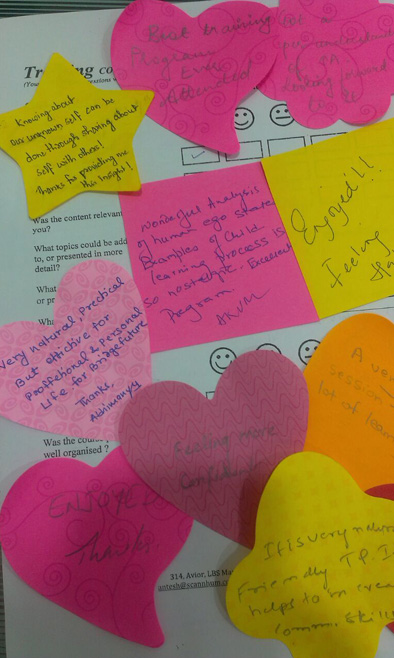 Best training
Program
Ever
Attended
Got to
TA
looking forward
to it
Knowing about
our unknown self can be
done through sharing about
self with others!
Thanks for providing me
this Insight!
Tra
(You
Was the content relevant
you?
What topics could be add
to, or presented in more
detail?
What
or pr
Wonderful Analysis
of human ego state
Examples of Child
learning process is
so nostelgic. Excellent
Program.
Enjoyed!!!
Feeling
Very natural, practical
But affictive for
Proffetional & Personal
Life for Bridge future
Thanks,
Abhimanyu
Feeling more
Confident
A ve
session
lot of lear
Was the cou
well organised ?
ENJOYE
Thanks
It is very
Friendly T.P. I
helps to in crea
Commn. Skill
314, Avior, LBS Ma